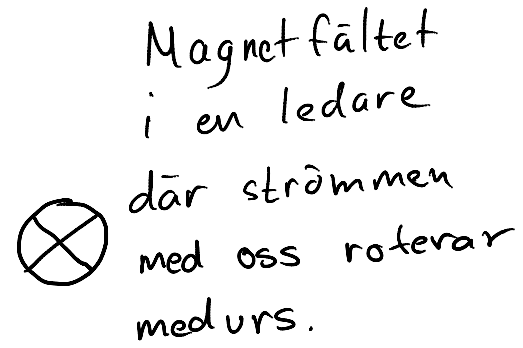 Magnetfältet
i en ledare
där strömmen
med oss roterar
medurs.